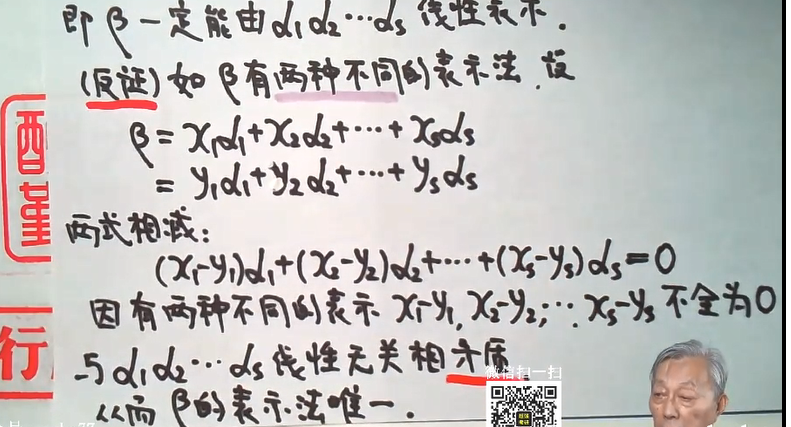 即 β 一定能由 α₁ α₂ ⋯ αₛ 线性表示.
(反证) 如 β 有两种不同的表示法, 设
β = x₁α₁ + x₂α₂ + ⋯ + xₛαₛ
= y₁α₁ + y₂α₂ + ⋯ + yₛαₛ
两式相减:
(x₁-y₁)α₁ + (x₂-y₂)α₂ + ⋯ + (xₛ-yₛ)αₛ = 0
因有两种不同的表示 x₁-y₁, x₂-y₂, ⋯, xₛ-yₛ 不全为0
与 α₁ α₂ ⋯ αₛ 线性无关相矛盾.
从而 β 的表示法唯一.
微信扫一扫
行